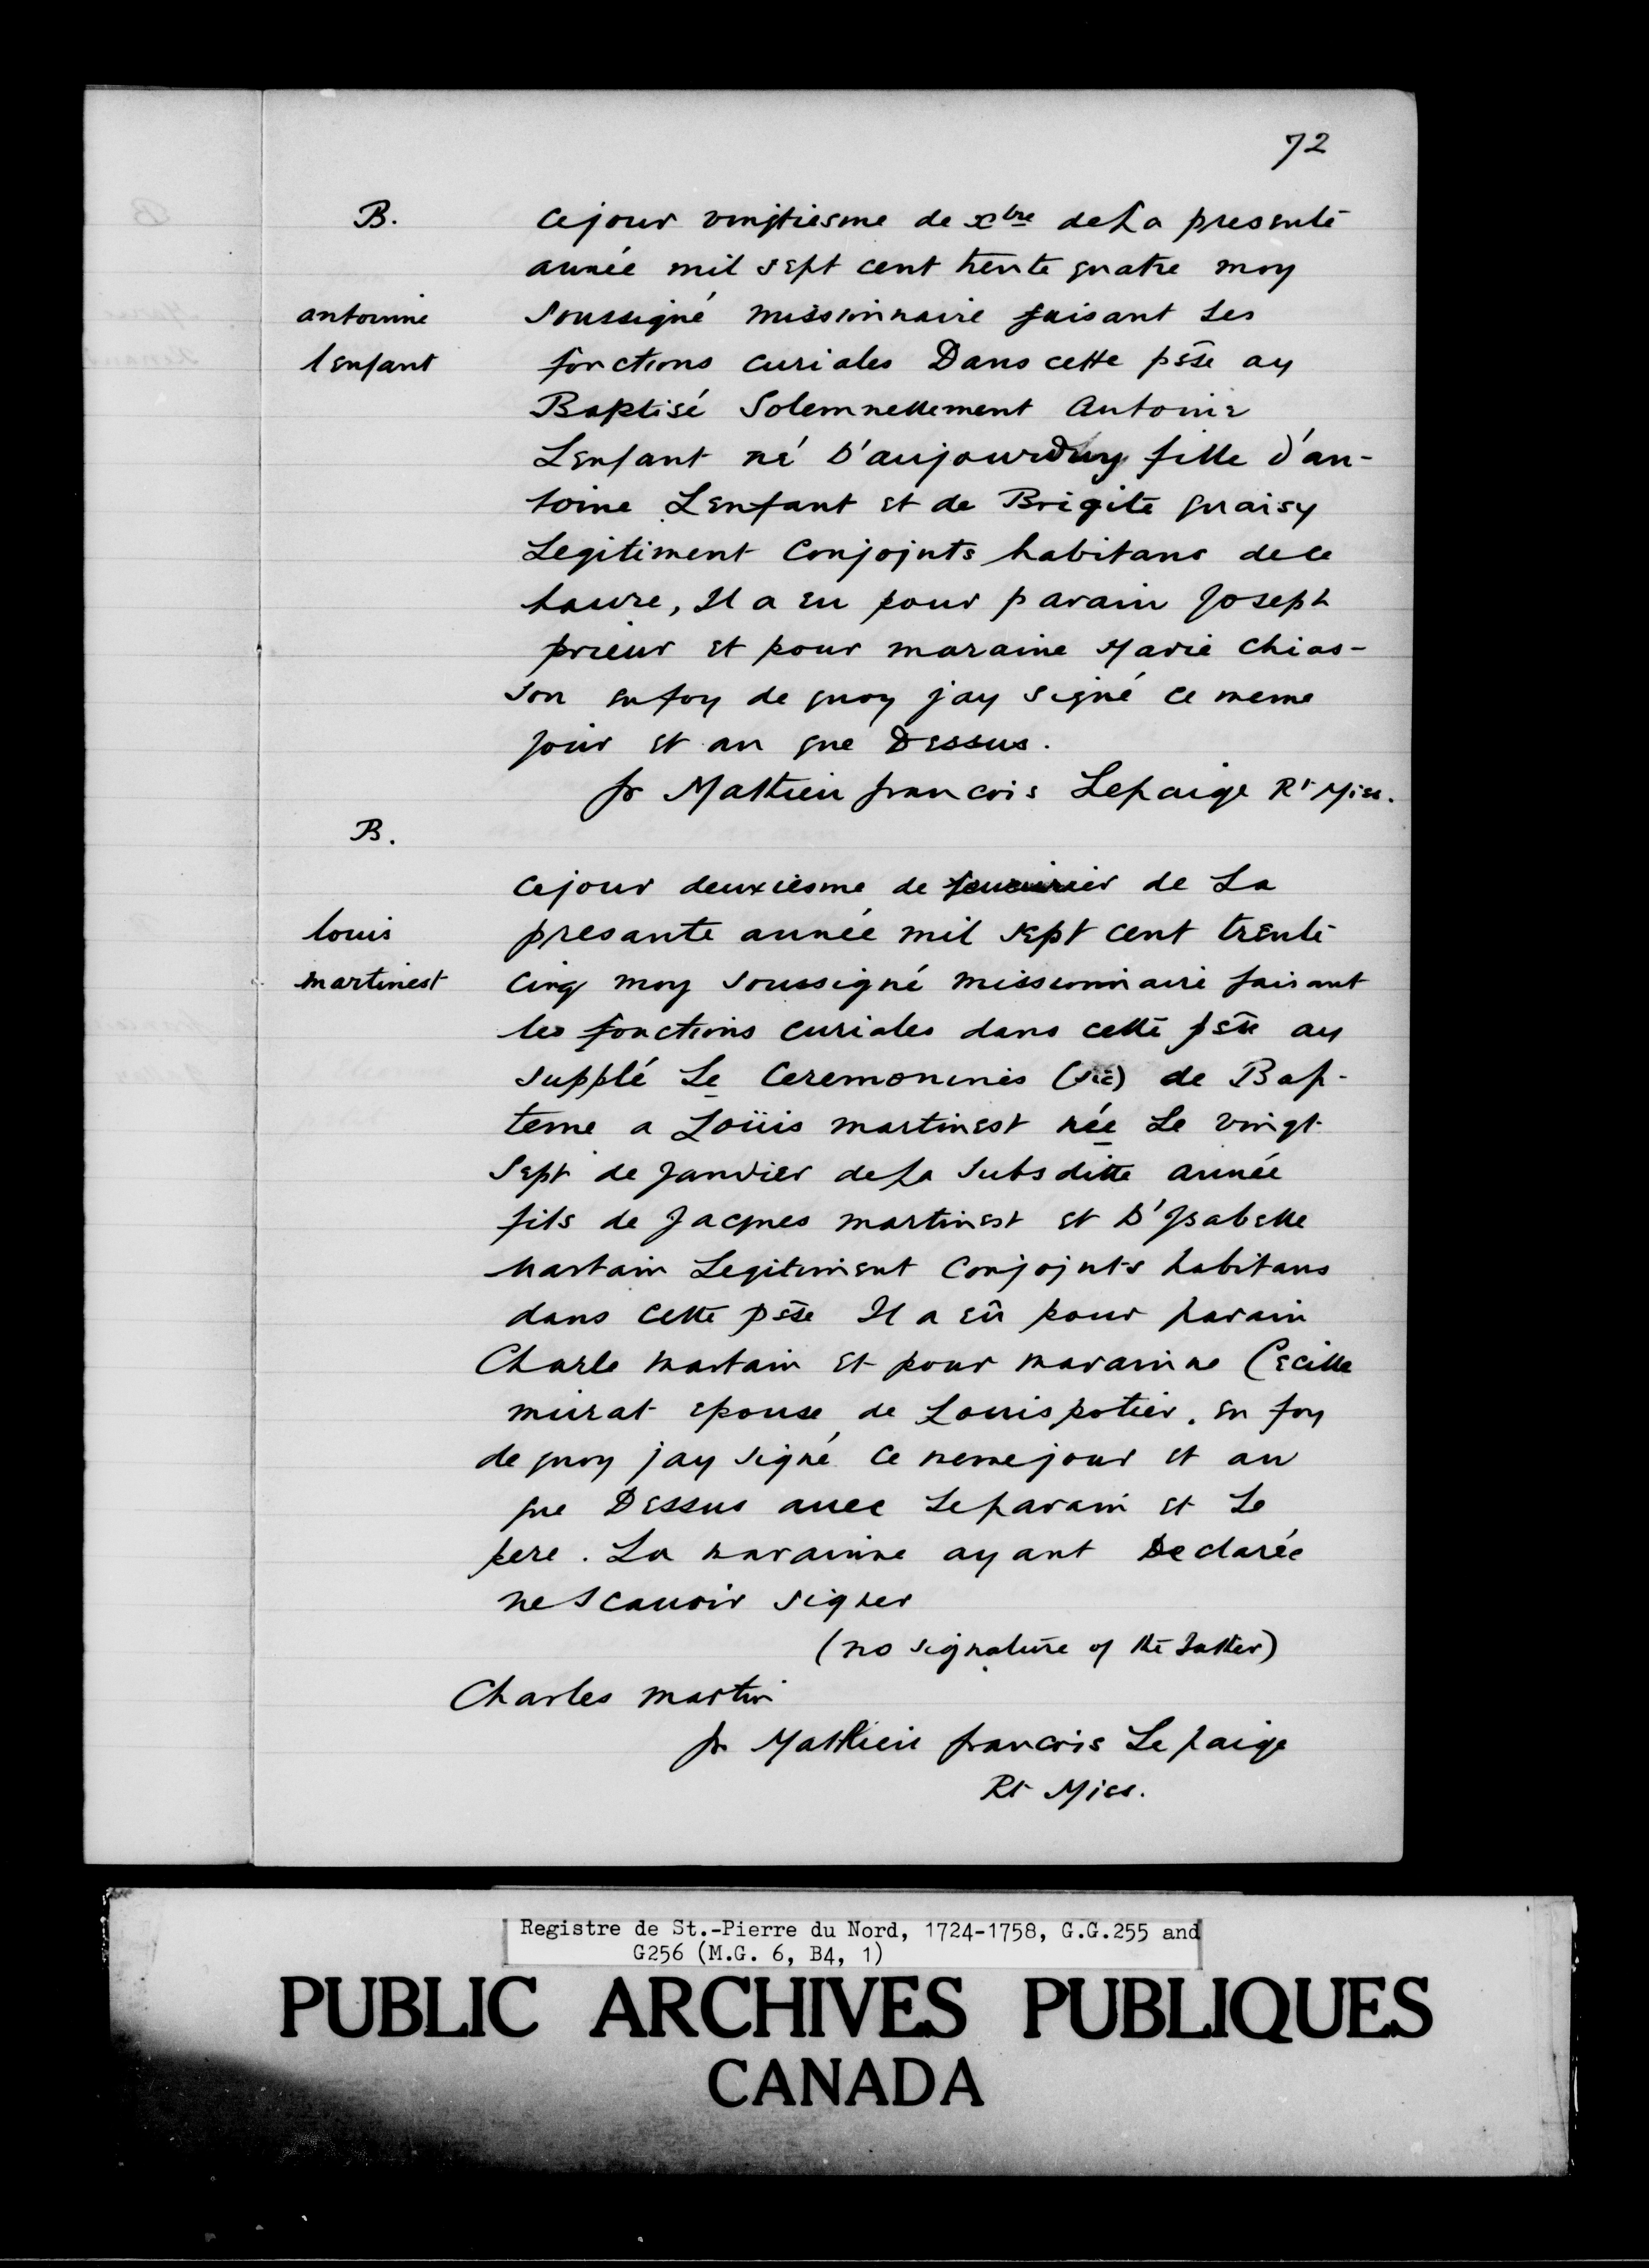 72
B.
cejour vingtiesme de xbre deLa presente
année mil sept cent trente quatre moy
antoinne
soussigné missionnaire faisant Les
lenfant
fonctions curiales Dans cette psse ay
Baptisé Solemnellement Antoine
Lenfant né D'aujourdhuy fille d'an-
toine Lenfant et de Brigite quaisy
Legitiment Conjoints habitans dece
havre, Il a eu pour parain Joseph
prieur et pour maraine Marie Chias-
son enfoy de quoy jay signé ce meme
jour et an que Dessus.
fr Mathieu francois Lepaige Rt Miss.
B.
cejour deuxiesme de de La
louis
presante année mil sept cent trente
martinest
cinq moy soussigné missionnaire faisant
les fonctions curiales dans cette psse ay
supplé Le Ceremoninies (sic) de Bap-
teme a Loüis martinest née Le vingt
Sept de Janvier deLa Subsditte année
fils de Jacques martinest et D'Isabelle
Martain Legitiment Conjoints habitans
dans cette psse Il a eû pour parain
Charle Martain et pour marainne Cecille
mirat epouse de Louis potier. en foy
de quoy jay signé ce memejour et an
que Dessus avec Leparain et Le
pere. La marainne ayant Declarée
ne Scauoir signer
(no signature of the father)
Charles martin
fr Mathieu francois Le paige
Rt Miss.
Registre de St.-Pierre du Nord, 1724-1758, G.G.255 and
G256 (M.G. 6, B4, 1)
PUBLIC ARCHIVES PUBLIQUES
CANADA